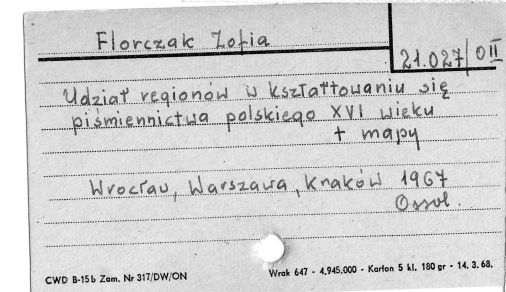 Florczak Zofia
21.027/OII
Udział regionów w kształtowaniu się
piśmiennictwa polskiego XVI wieku
+ mapy
Wrocław, Warszawa, Kraków 1967
Ossol.
CWD B-15b Zam. Nr 317/DW/ON
Wrak 647 - 4.945.000 - Karton 5 kl. 180 gr - 14.3.68.